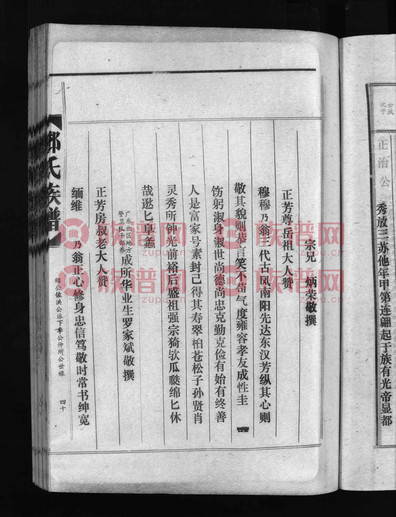 正治公
秀放三苏他年甲第连翩起于族有光帝显都
宗兄 炳荣敬撰
正芳尊岳祖大人赞
穆穆乃翁三代古风南阳先达东汉芳纵其心则
敬其貌则恭言笑不苟气度雍容孝友成性圭
饬躬淑身淑世尚德尚忠克勤克俭有始有终善
人是富家号素封己得其寿翠柏苍松子孙贤肖
灵秀所钟光前裕后盛祖强宗猗欤瓜瓞绵匕休
哉逖匕阜
成所华业生罗家斌敬撰
正芳房叔老大人赞
缅维 乃翁正心修身忠信笃敬时常书绅宽
氏族谱
四十
族谱网